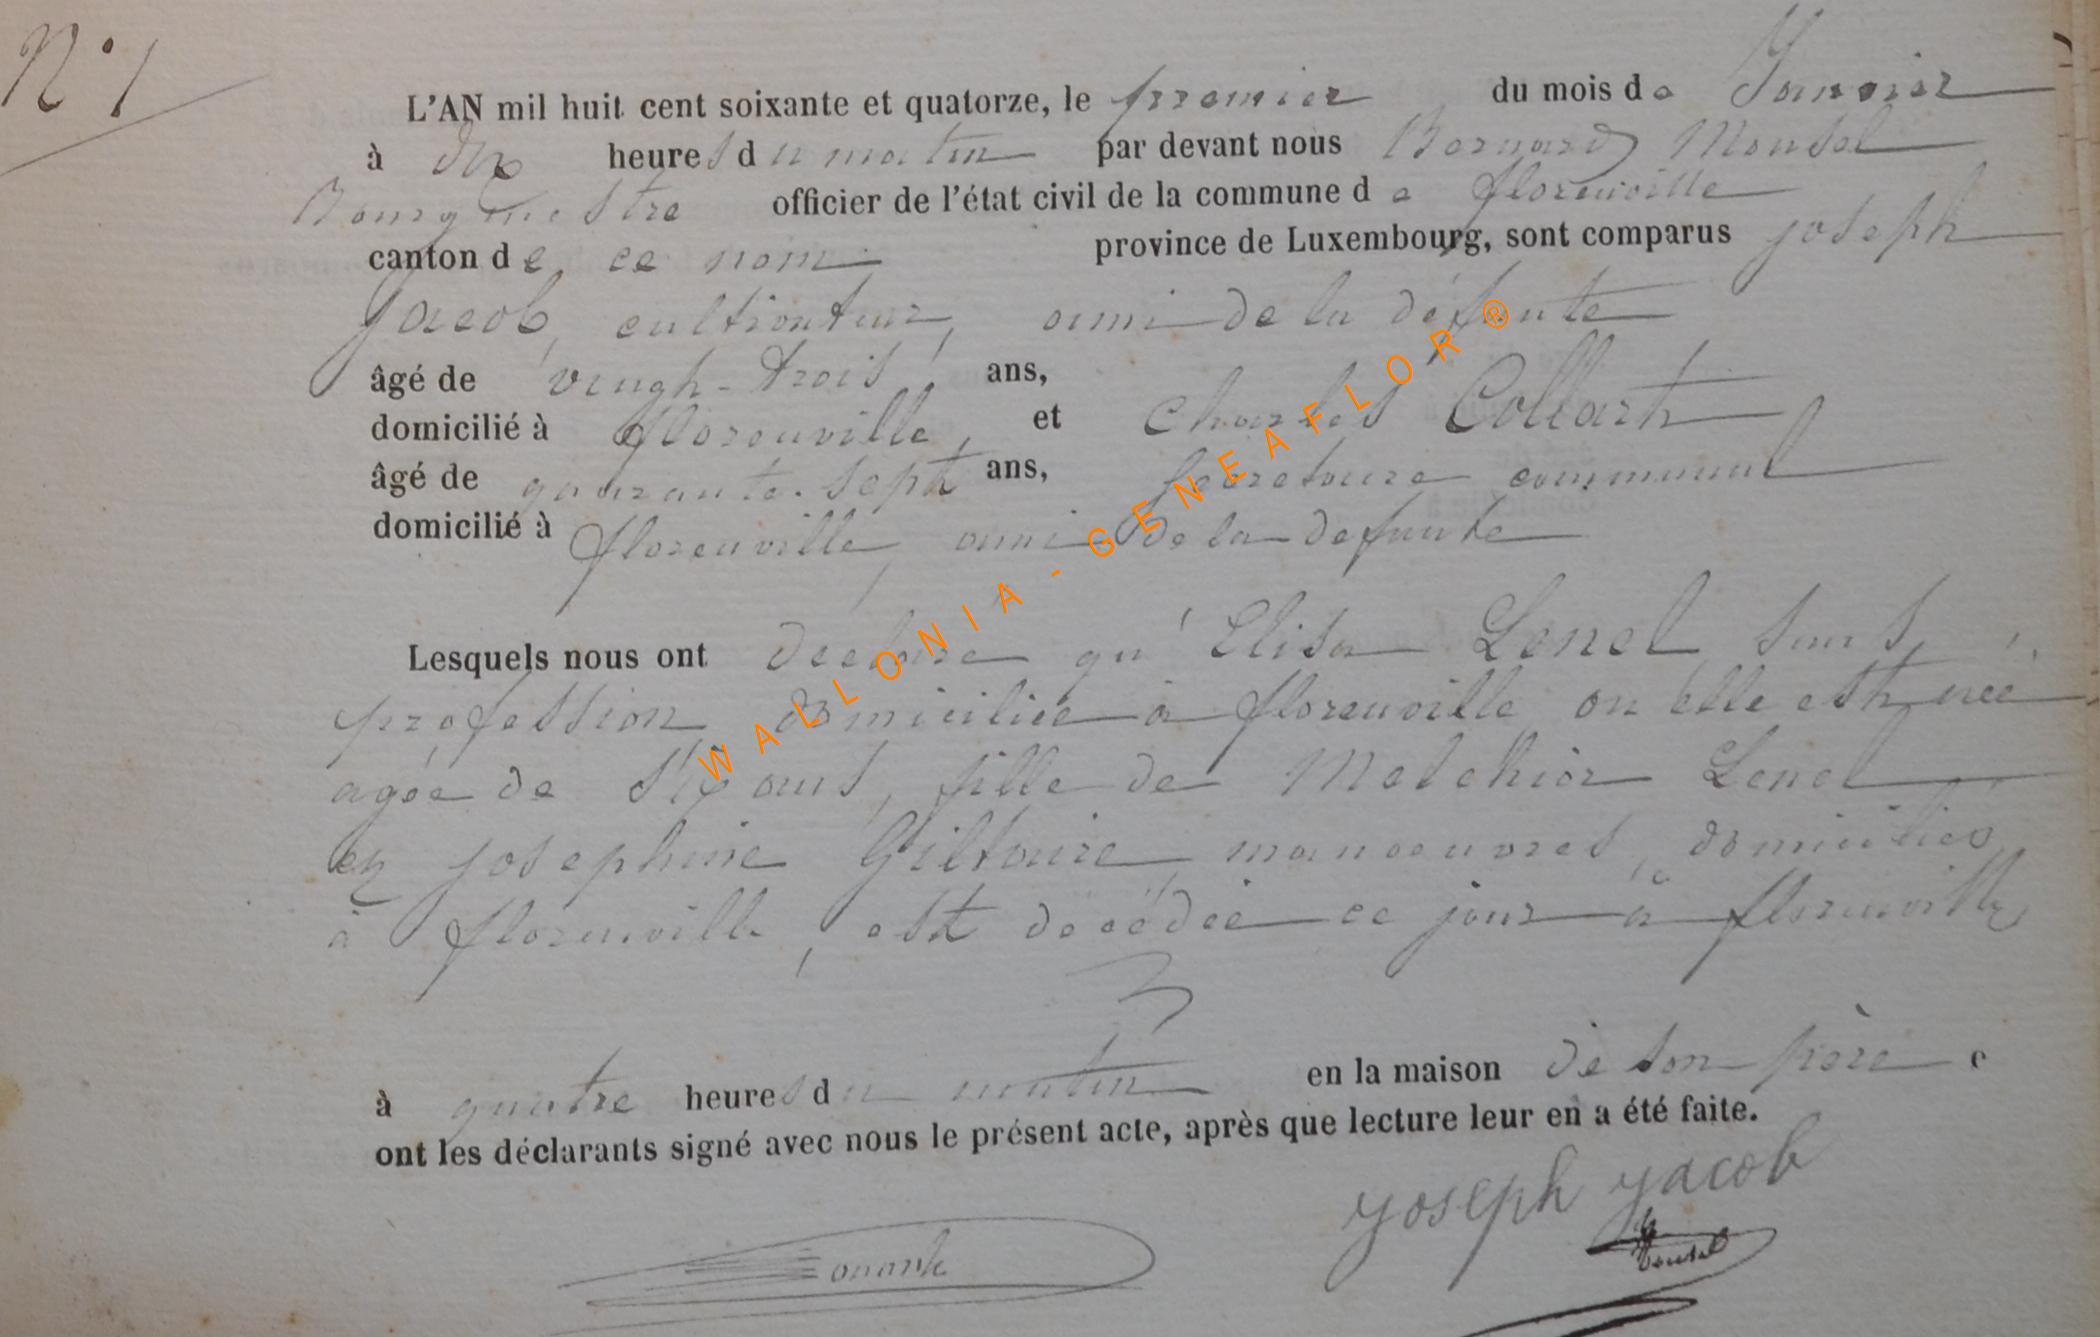 N° 1
L'AN mil huit cent soixante et quatorze, le premier du mois de Janvier
à dix heures du matin par devant nous Bernard Monsel
Bourgmestre officier de l'état civil de la commune de florenville
canton de ce nom province de Luxembourg, sont comparus joseph
jacob, cultivateur, ami de la défunte
âgé de vingt-trois ans,
domicilié à florenville, et Charles Collart
âgé de quarante-sept ans, secretaire communal
domicilié à florenville, ami de la defunte
Lesquels nous ont declaré qu'Elisa Lenel, sans
profession domiciliée à florenville où elle est née
agée de six ans, fille de Melchior Lenel
et josephine Giltaire, manoeuvres, domiciliés
à florenville, est décédée ce jour à florenville,
à quatre heures du matin en la maison de son père e
ont les déclarants signé avec nous le présent acte, après que lecture leur en a été faite.
joseph jacob
WALLONIA-GENEAFLOR®